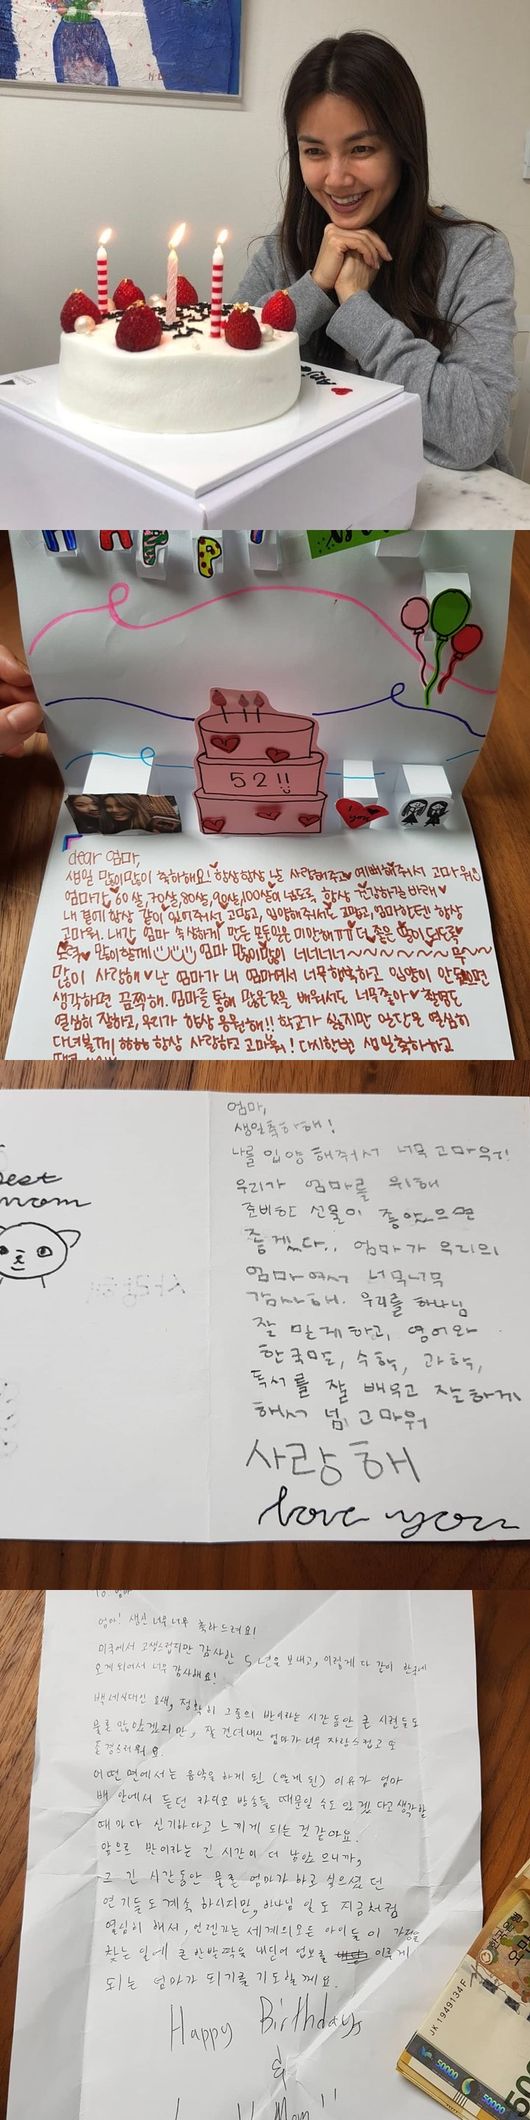 HAPPY
52!!
I ♥ you
dear 엄마,
생일 많이많이 축하해요! 항상항상 날 사랑해주고 예뻐해줘서 고마워
엄마가 60살, 70살, 80살, 90살, 100살이 넘도록 항상 건강하길 바래♥
내 곁에 항상 같이 있어주서 고맙고, 입양해주서도 고맙고, 엄마한텐 항상
고마워. 내가 엄마 속상하게 만든 모든일은 미안해ㅠㅠ 더 좋은 딸이 되도록
노력 많이할께 엄마 많이많이 너너너너~~~~~무
많이 사랑해♥ 난 엄마가 내 엄마여서 너무행복하고 입양이 안됬으면
생각하면 끔찍해. 엄마를 통해 많은것을 배워서도 너무좋아♥
열심히 잘하고, 우리가 항상 응원해!! 학교가 싫지만 일단은 열심히
다녀볼께 항상 사랑하고 고마워! 다시한번 생일축하하고
best
mom
엄마,
생일축하해!
나를 입양 해주어서 너무 고마워!
우리가 엄마를 위해
준비한 선물이 좋았으면
좋겠다.. 엄마가 우리의
엄마여서 너무너무
감사해. 우리를 하나님
잘 믿게하고, 영어와
한국말, 수학, 과학,
독서를 잘 배우고 잘하게
해줘서 넘 고마워
사랑해
love you
To. 엄마
엄마! 생신 너무너무 축하드려요!
미국에서 고생스럽지만 감사한 5년을 보내고, 이렇게 다 같이 한국에
오게되어서 너무 감사해요!
백세시대인 요새, 정확히 그중의 반이라는 시간동안 큰 시련들도
물론 많았겠지만, 잘 견뎌내신 엄마가 너무 자랑스럽고 또
존경스러워요.
어떤 면에서는 음악을 하게 된 (알게 된) 이유가 엄마
배 안에서 듣던 라디오 방송들 때문일 수도 있겠다고 생각할
때마다 신기하다고 느끼게 되는 것 같아요.
앞으로 반이라는 긴 시간이 더 남았으니까,
그 긴 시간동안 물론 엄마가 하고 싶으셨던
연기들도 계속 하시지만, 하나님 일도 지금처럼
열심히 해서, 언젠가는 세계의모든 아이들이 가정을
찾는 일에 큰 한발짝을 내딛어 업보를 이루게
되는 엄마가 되기를 기도할께요.
Happy Birthday
&
Mom!!
JX 1949134 F
50000
50000